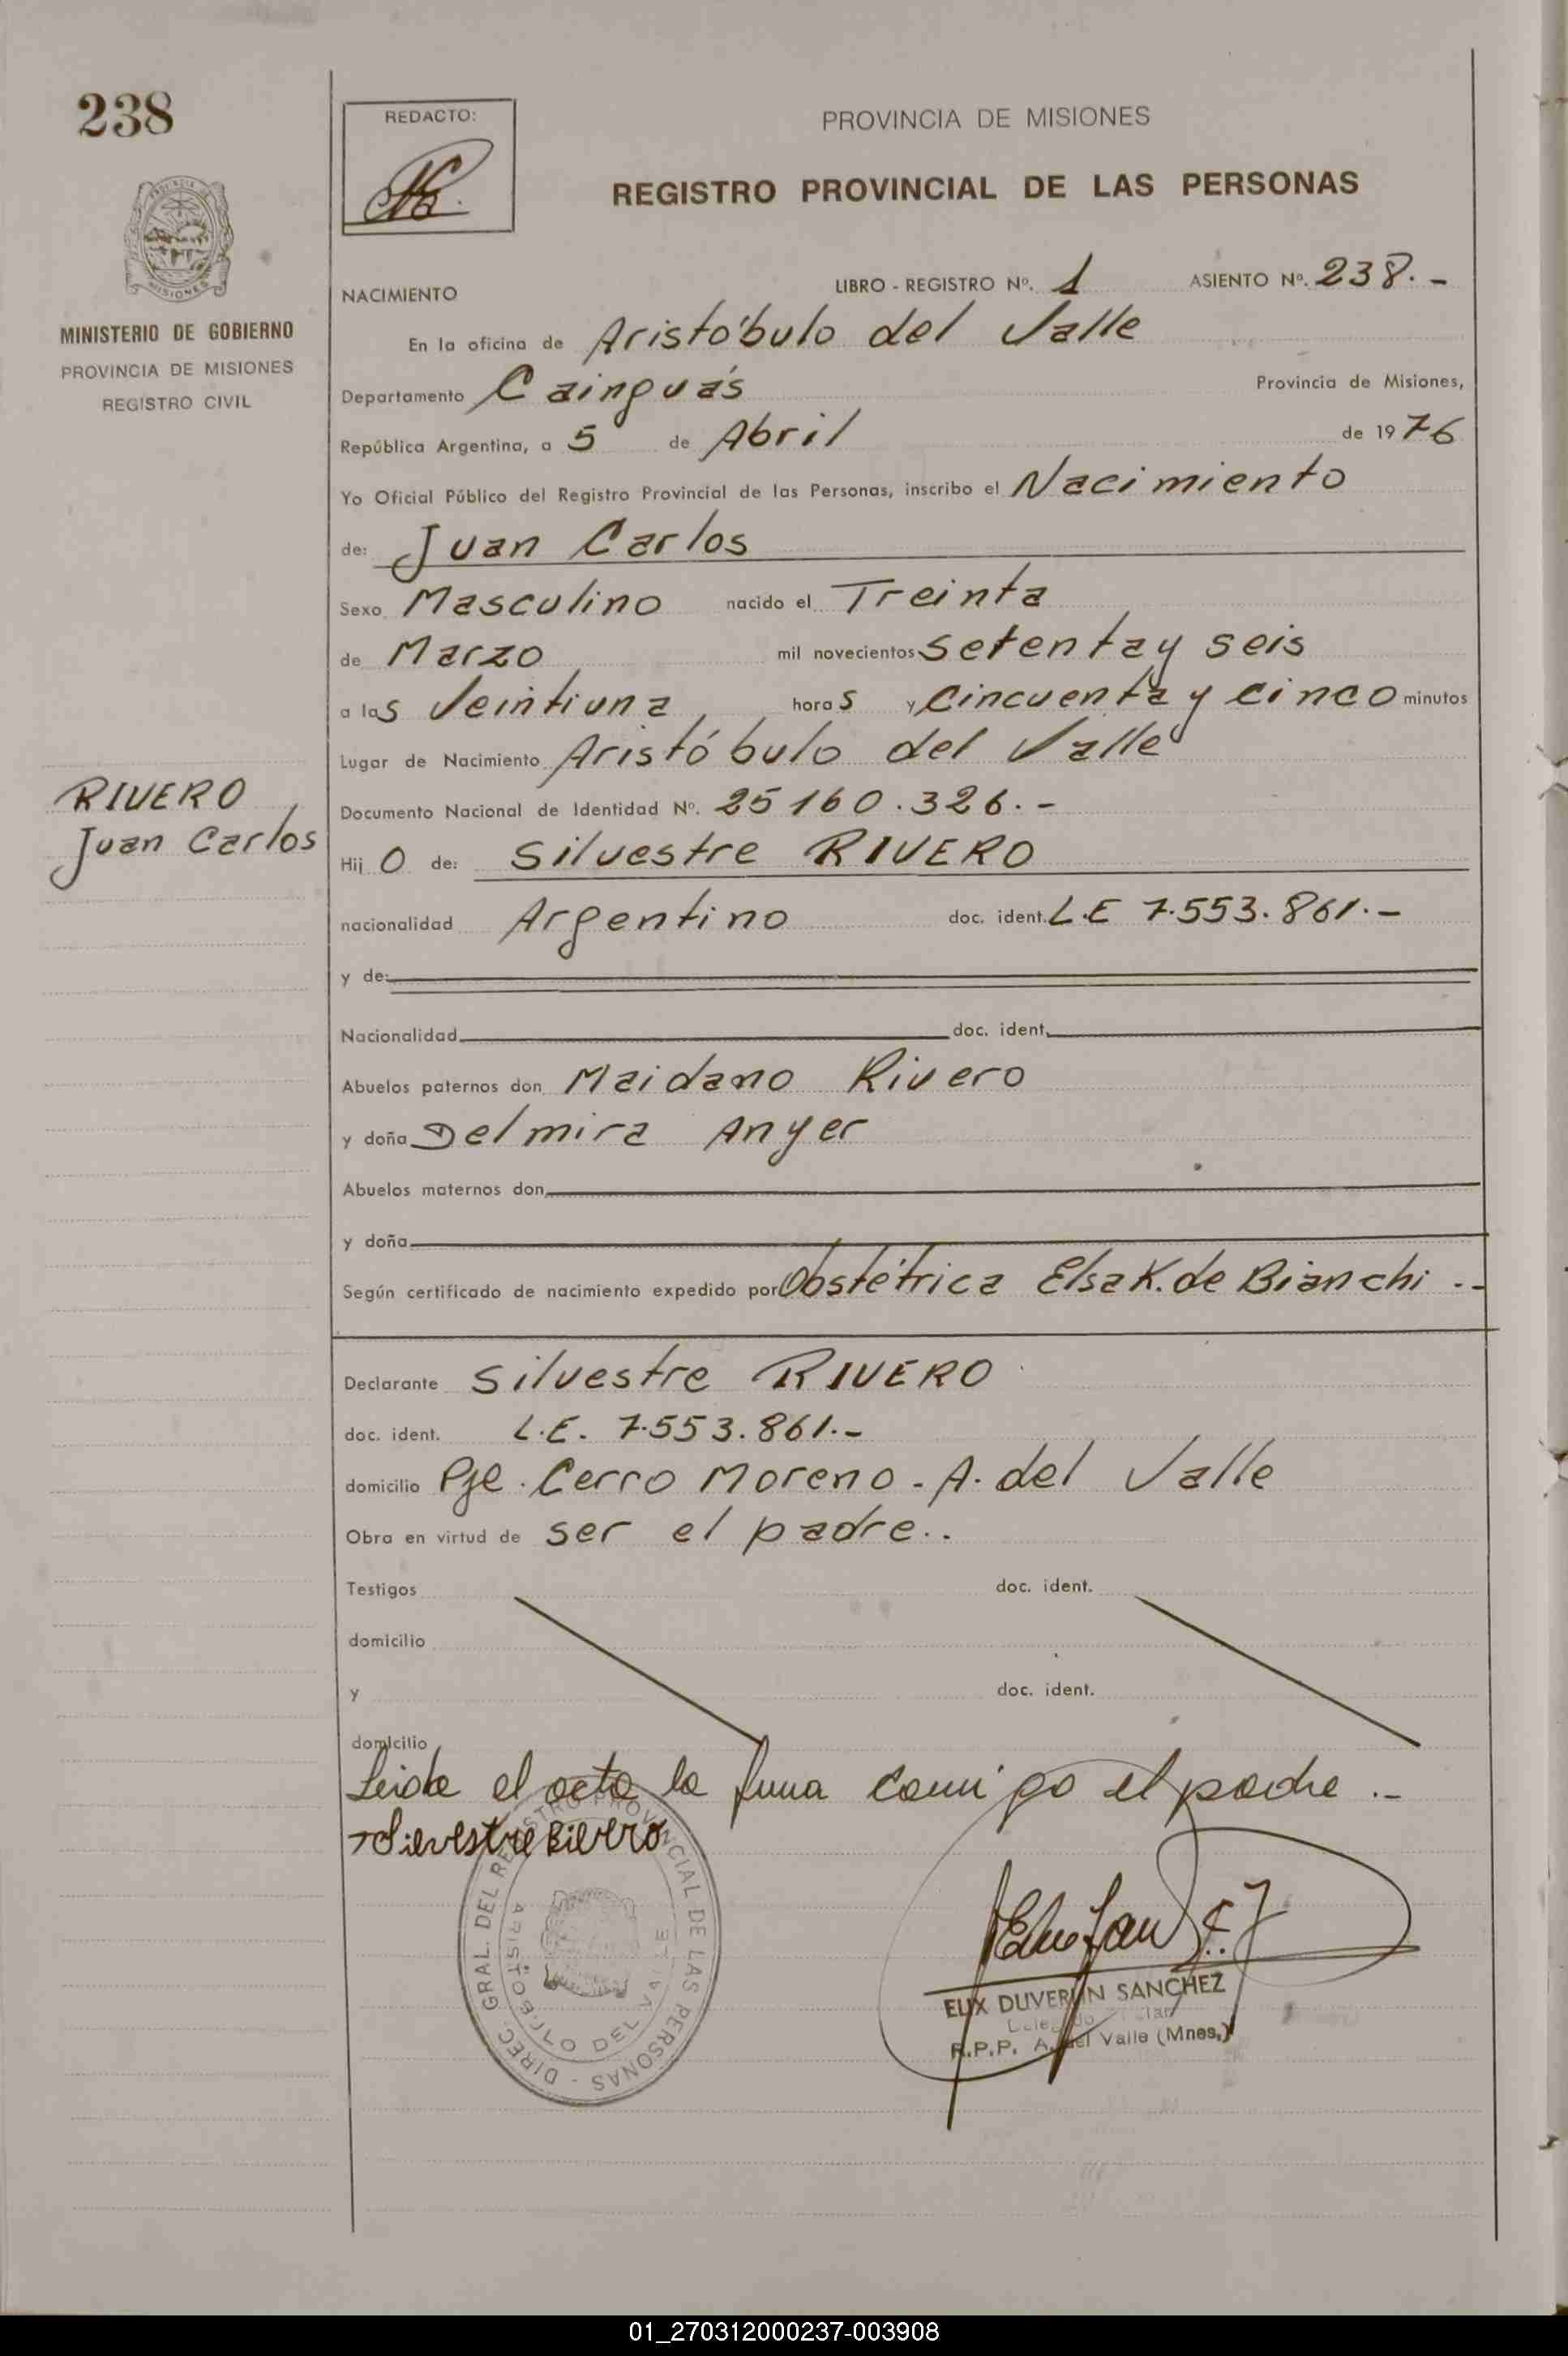 238
PROVINCIA DE MISIONES
MINISTERIO DE GOBIERNO
PROVINCIA DE MISIONES
REGISTRO CIVIL
RIVERO,
Juan Carlos
REDACTO:
PROVINCIA DE MISIONES
REGISTRO PROVINCIAL DE LAS PERSONAS
NACIMIENTO LIBRO - REGISTRO Nº. 1 ASIENTO Nº. 238.-
En la oficina de Aristóbulo del Valle
Departamento Cainguás Provincia de Misiones,
República Argentina, a 5 de Abril de 1976
Yo Oficial Público del Registro Provincial de las Personas, inscribo el Nacimiento
de: Juan Carlos
Sexo Masculino nacido el Treinta
de Marzo mil novecientos setenta y seis
a las Veintiuna, horas y Cincuenta y cinco minutos
Lugar de Nacimiento Aristóbulo del Valle
Documento Nacional de Identidad Nº. 25160.326.-
Hijo de: Silvestre RIVERO
nacionalidad Argentino doc. ident. L.E 7.553.861.-
y de:
Nacionalidad doc. ident.
Abuelos paternos don Maidano Rivero
y doña Delmira Anyer
Abuelos maternos don
y doña
Según certificado de nacimiento expedido por Obstétrica Elsa K. de Bianchi .-
Declarante Silvestre RIVERO
doc. ident. L.E. 7.553.861.-
domicilio Pje. Cerro Moreno - A. del Valle
Obra en virtud de ser el padre..
Testigos doc. ident.
domicilio
y doc. ident.
domicilio
Leida el acta la firma conmigo el padre .-
Silvestre Rivero
DIREC. GRAL. DEL REGISTRO PROVINCIAL DE LAS PERSONAS -
ARISTOBULO DEL VALLE
ELIX DUVERLIN SANCHEZ
R.P.P. A. del Valle (Mnes.)
01_270312000237-003908